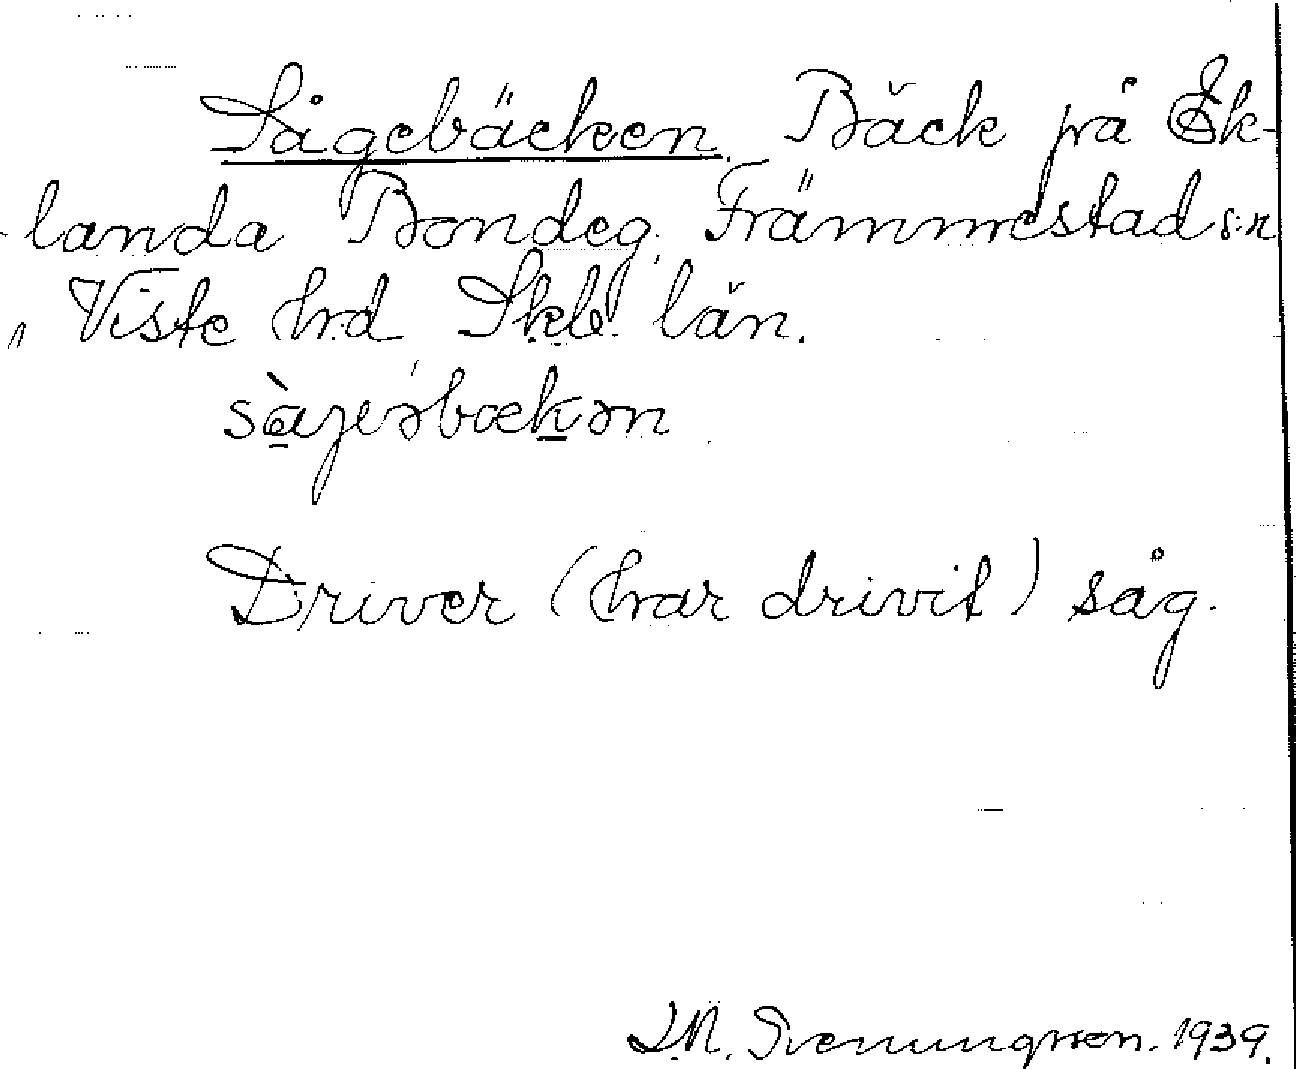 Sågebäcken. Bäck på Ek-
landa Bondeg. Främmestad s:n
Viste hrd Skb. län.
sàgesbækən
Driver (har drivit) såg.
J.N. Svenungsson. 1939.